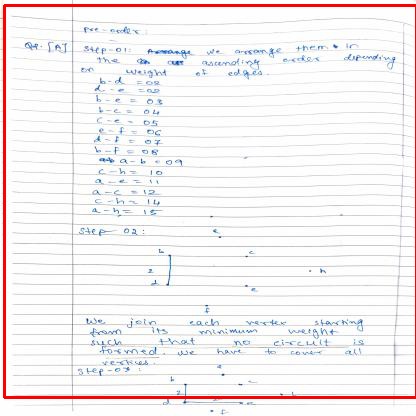 pre-order:
Q4. [A] Step-01: we arrange them in
the ascending order depending
on weight of edges.
b-d = 02
d-e = 02
b-e = 03
b-c = 04
c-e = 05
e-f = 06
d-f = 07
b-f = 08
a-b = 09
c-h = 10
a-e = 11
a-c = 12
c-h = 14
a-h = 15
Step-02:
b
c
2
h
d
e
f
We join each vertex starting
from its minimum weight
such that no circuit is
formed. We have to cover all
vertices.
Step-03:
b
c
2
d
e
f